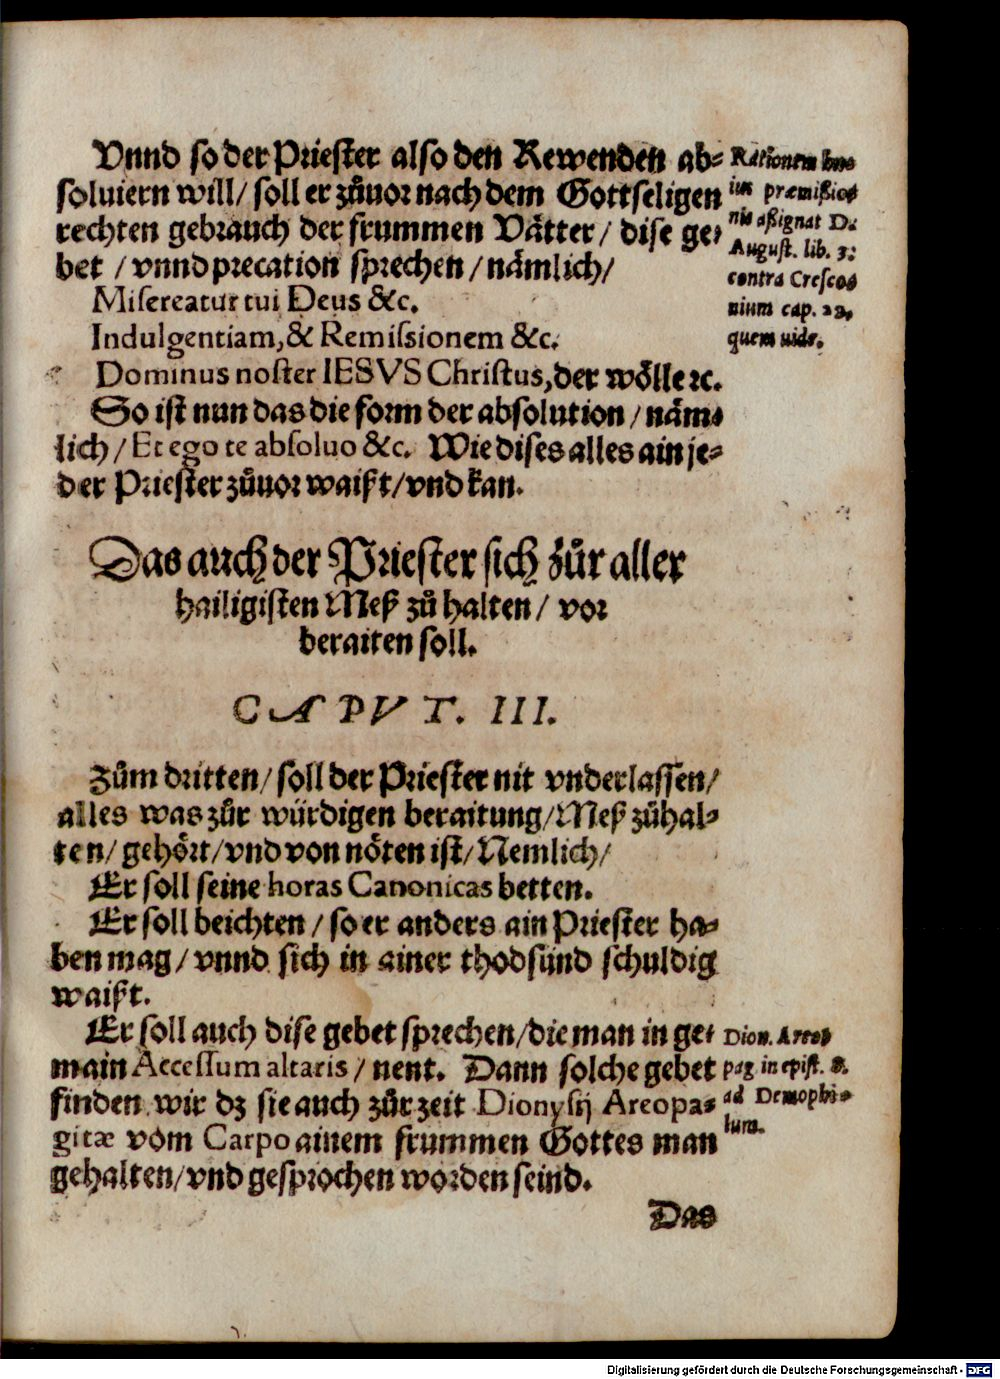 Vnnd so der Priester also den Rewenden ab-
soluiern will/ soll er zůuor nach dem Gottseligen
rechten gebrauch der frummen Vätter/ dise ge-
bet / vnnd precation sprechen / nämlich/
Misereatur tui Deus &c.
Indulgentiam, & Remissionem &c.
Dominus noster IESVS Christus, der wölle ꝛc.
So ist nun das die form der absolution / näm-
lich / Et ego te absoluo &c. Wie dises alles ain je-
der Priester zůuor waißt/ vnd kan.
Rationem huius præmissio-
nis assignat D.
August. lib. 3.
contra Cresco-
nium cap.
quem uide.
Das auch der Priester sich zůr aller
hailigisten Meß zů halten / vor
beraiten soll.
CAPVT. III.
Zům dritten/ soll der Priester nit vnderlassen/
alles was zůr würdigen beraitung/ Meß zůhal-
ten/ gehört/ vnd von nöten ist/ Nemlich/
Er soll seine horas Canonicas betten.
Er soll beichten / so er anders ain Priester ha-
ben mag / vnnd sich in ainer thodsünd schuldig
waißt.
Er soll auch dise gebet sprechen/ die man in ge-
main Accessum altaris / nent. Dann solche gebet
finden wir dz sie auch zůr zeit Dionysij Areopa-
gitæ vom Carpo ainem frummen Gottes man
gehalten/ vnd gesprochen worden seind.
Dion. Areo-
pag in epist. 8.
ad Demophi-
lum.
Das
Digitalisierung gefördert durch die Deutsche Forschungsgemeinschaft - DFG